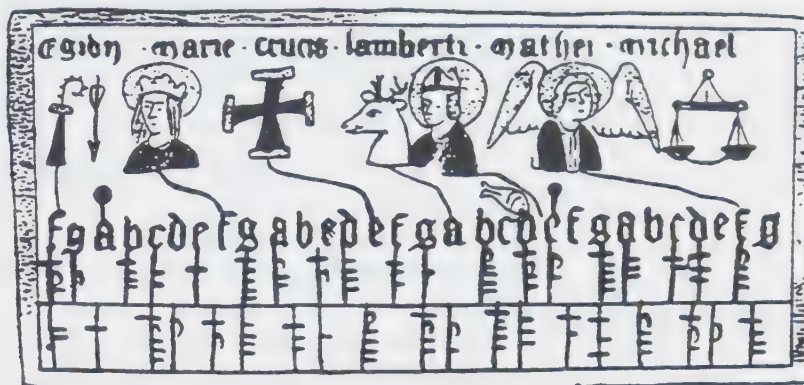 egidij · marie · crucis · lamberti · mathei · michael
f g a b c d e f g a b c d e f g a b c d e f g a b c d e f g